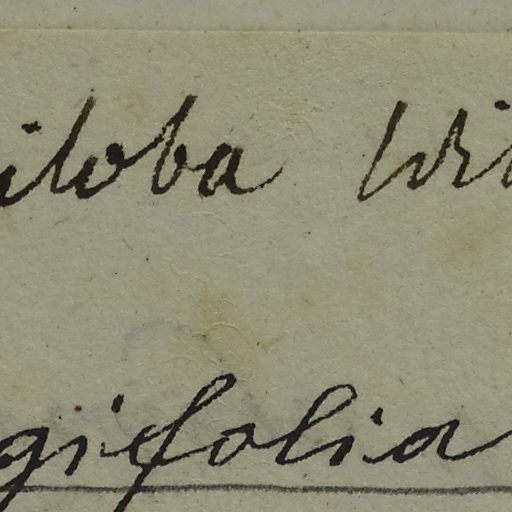 iloba Wi
gifolia